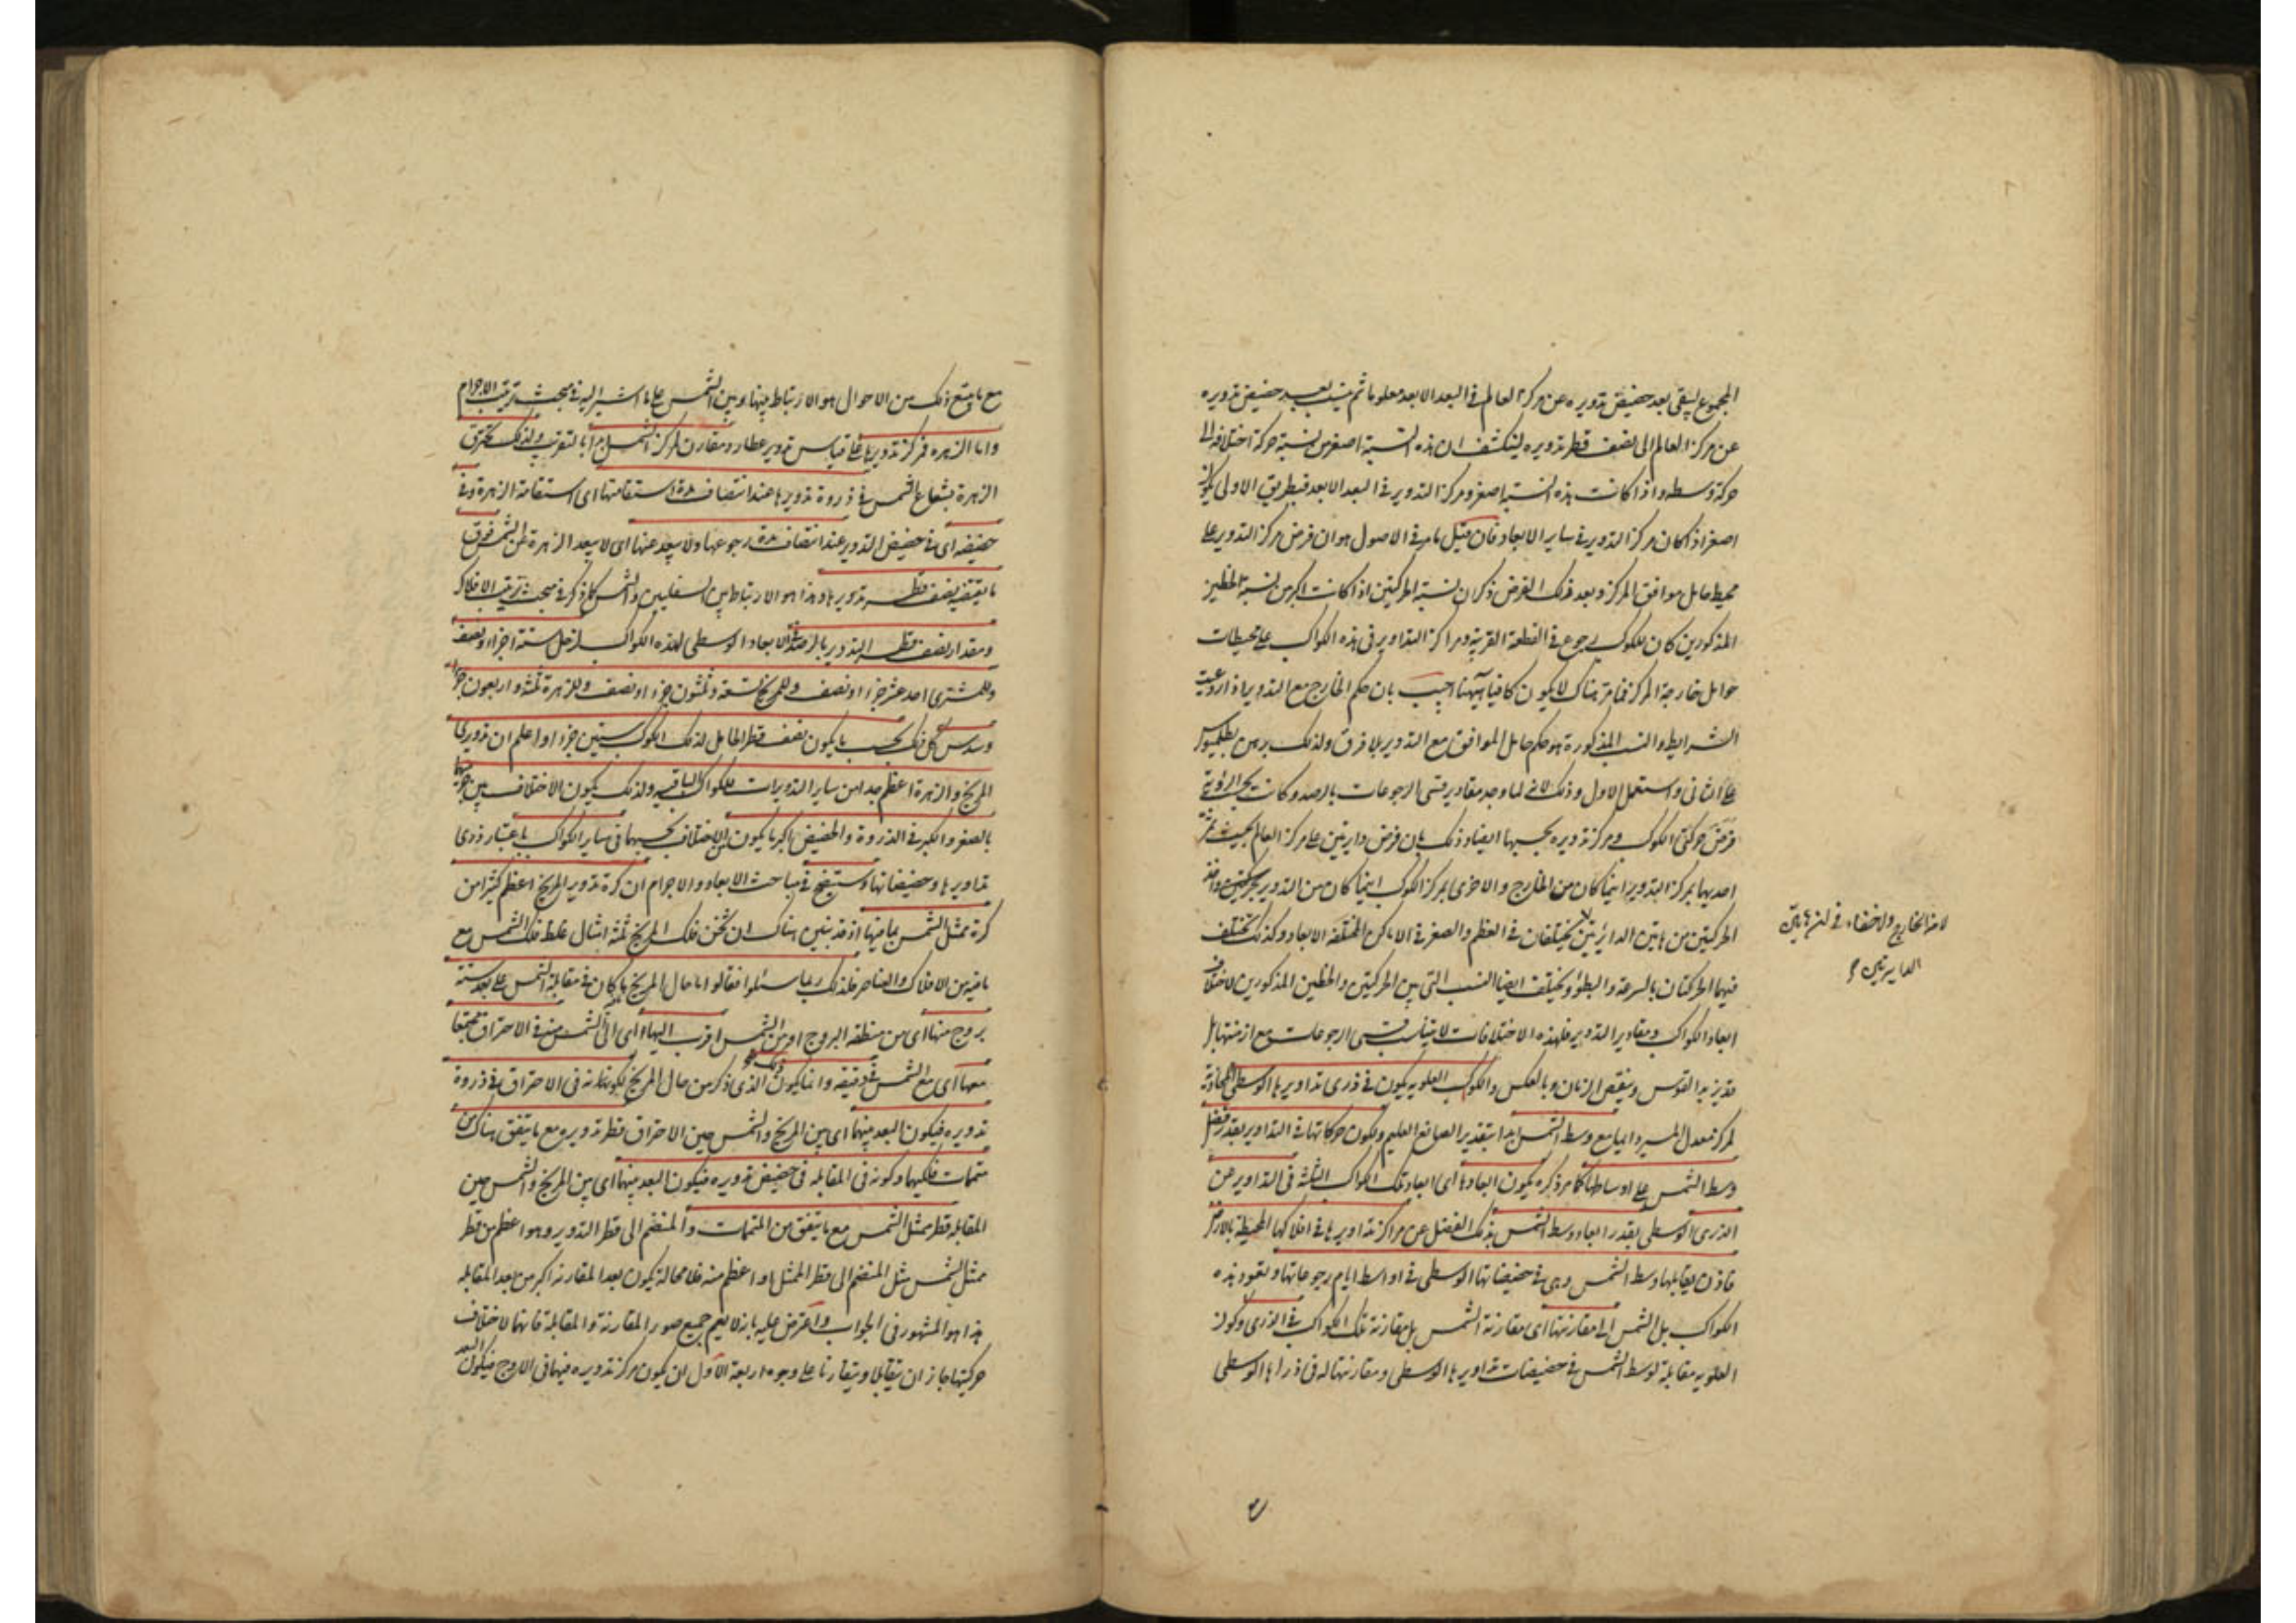 المجموع ليبقى بعد حضيض تدويره عن مركز العالم في البعد الابعد معلوما ثم ينسب بعد حضيض تدويره
عن مركز العالم الى نصف قطر تدويره لينكشف ان هذه النسبة اصغر من نسبة حركة اختلافه الى
حركة وسطه واذا كانت هذه النسبة اصغر ومركز التدوير في البعد الابعد فبطريق الاولى يكون
اصغر اذا كان مركز التدوير في ساير الابعاد فان قيل ما مر في الاصول هو ان فرض مركز التدوير على
محيط حامل موافق المركز وبعد ذلك الفرض ذكر ان نسبة الحركتين اذا كانت اكبر من نسبة الخطين
المذكورين كان للكوكب رجوع في القطعة القريبة ومراكز التداوير في هذه الكواكب على محيطات
حوامل خارجة المركز فما مر هناك لا يكون كافيا ههنا اجيب بان حكم الخارج مع التدوير اذا روعيت
الشرايط والنسب المذكورة هو حكم حامل الموافق مع التدوير بلا فرق ولذلك برهن بطلميوس
على الثاني واستعمل الاول وذلك لانه لما وجد مقادير قسي الرجوعات بالرصد وكانت
فرض حركتي الكوكب ومركز تدويره بحسبها ايضا وذلك بان فرض دايرتين على مركز العالم بحيث تمر
احديهما بمركز التدوير اينما كان من الخارج والاخرى بمركز الكوكب اينما كان من التدوير
الحركتين من هاتين الدائرتين لا يختلفان في العظم والصغر في الاماكن المختلفة الابعاد وكذلك تختلف
فيهما الحركتان بالسرعة والبطؤ وتختلف ايضا النسب التي بين الحركتين والخطين المذكورين لاختلاف
ابعاد الكواكب ومقادير التدوير فلهذه الاختلافات لا يتناسب قسي الرجوعات مع ازمنتها بل
قد يزيد القوس وينقص الزمان وبالعكس والكواكب العلوية يكون في ذرى تداويرها الوسطى المحاذية
لمركز معدل المسير دايما مع وسط الشمس ابدا بتقدير الصانع العليم ويكون حركاتها في التداوير بقدر فضل
وسط الشمس على اوساطها كما مر ذكره يكون ابعادها اى ابعاد تلك الكواكب الثلثة في التداوير عن
الذرى الوسطى بقدر ابعاد وسط الشمس بذلك الفضل عن مراكز تداويرها في افلاكها المحيطة بالارض
فاذن يقابلها وسط الشمس وهي في حضيضاتها الوسطى في اواسط ايام رجوعاتها وتعود هذه
الكواكب بل الشمس الى مقارنتها اى مقارنة الشمس بل مقارنة تلك الكواكب في الذرى وكون
العلوية مقابلة لوسط الشمس في حضيضات تداويرها الوسطى ومقارنتها له في ذراها الوسطى
الدايرتين
مع ما يتبع ذلك من الاحوال هو الارتباط بينها وبين الشمس على ما اشير اليه في مبحث ترتيب الاجرام
واما الزهره فمركز تدويرها على قياس تدوير عطارد مقارن لمركز الشمس ابدا بالتقريب ولذلك تحترق
الزهرة بشعاع الشمس في ذروة تدويرها عند انتصاف مدة استقامتها اى استقامة الزهرة وفي
حضيضه اى في حضيض التدوير عند انتصاف مدة رجوعها ولا يبعد عنها اى لا يبعد الزهرة عن الشمس فوق
ما يقتضيه نصف قطر تدويرها وهذا هو الارتباط بين السفليين والشمس كما ذكر في مبحث ترتيب الافلاك
ومقدار نصف قطر التدوير بالرصد في الابعاد الوسطى لهذه الكواكب لزحل ستة اجزاء ونصف
وللمشترى احد عشر جزءا ونصف وللمريخ تسعة وثلثون جزءا ونصف وللزهرة ثلثة واربعون جزءا
وسدس كل ذلك بحسب ما يكون نصف قطر الحامل لذلك الكوكب ستين جزءا واعلم ان تدويرى
المريخ والزهرة اعظم جدا من ساير التدويرات للكواكب الباقيه ولذلك يكون الاختلاف بين جرميهما
بالصغر والكبر في الذروة والحضيض اكبر ما يكون من الاختلاف بحسبهما في ساير الكواكب باعتبار ذرى
تداويرها وحضيضاتها وستتضح في مباحث الابعاد والاجرام ان كرة تدوير المريخ اعظم كثيرا من
كرة ممثل الشمس بما فيها اذ قد تبين هناك ان ثخن فلك المريخ ثلثة امثال غلظ فلك الشمس مع
ما فيه من الافلاك والعناصر فلذلك ربما سئلوا فقالوا ما حال المريخ ما كان في مقابلة الشمس على بعد ستة
بروج منها اى من منطقة البروج او من الشمس اقرب اليها اى الى الشمس منه في الاحتراق مجتمعا
معها اى مع الشمس في دقيقه وانما يكون ذلك الذى ذكر من حال المريخ لكونه في الاحتراق في ذروة
تدويره فيكون البعد بينهما اى بين المريخ والشمس حين الاحتراق قطر تدويره مع ما يتفق هناك من
متممات فلكيهما وكونه في المقابلة في حضيض تدويره فيكون البعد بينهما اى بين المريخ والشمس حين
المقابلة قطر ممثل الشمس مع ما يتفق من المتممات والمنضم الى قطر التدوير وهو اعظم من قطر
ممثل الشمس مثل المنضم الى قطر الممثل او اعظم منه فلا محالة يكون بعد المقارنة اكبر من بعد المقابلة
هذا هو المشهور في الجواب واعترض عليه بانه لا يعم جميع صور المقارنة والمقابلة فانهما لاختلاف
حركتيهما جاز ان يتقابلا ويتقارنا على وجوه اربعة الاول ان يكون مركز تدويره فيهما في الاوج فيكون البعد